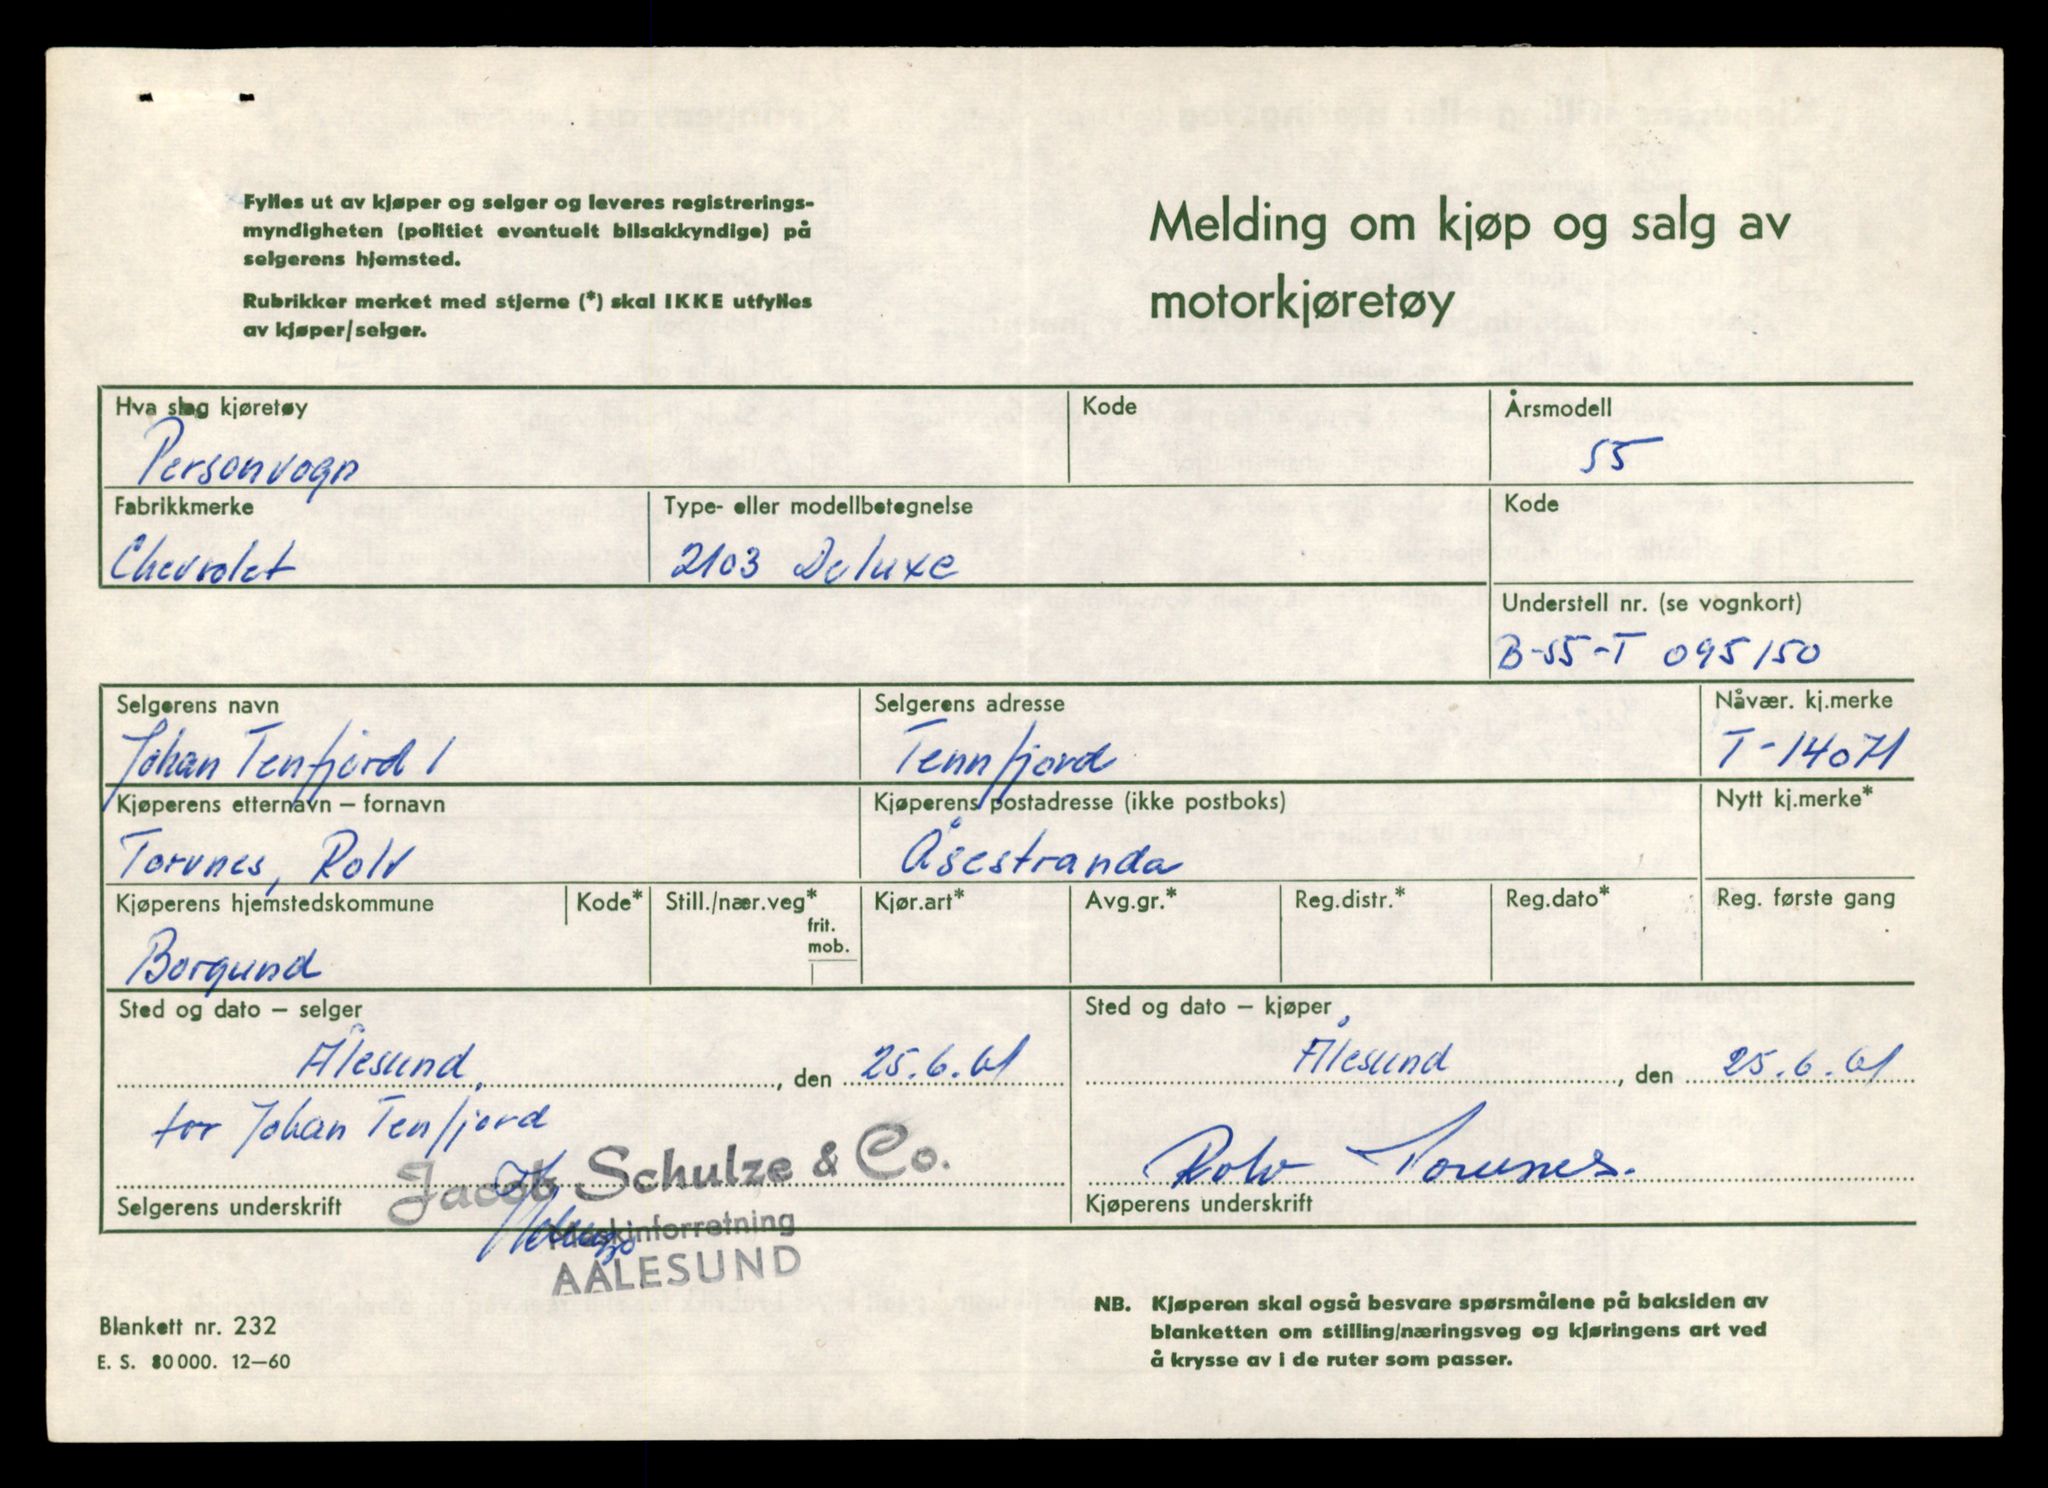 Fylles ut av kjøper og selger og leveres registrerings-
myndigheten (politiet eventuelt bilsakkyndige) på
selgerens hjemsted.
Rubrikker merket med stjerne (*) skal IKKE utfylles
av kjøper/selger.
Melding om kjøp og salg av
motorkjøretøy
Hva slag kjøretøy
Kode
Årsmodell
Personvogn
55
Fabrikkmerke
Type- eller modellbetegnelse
Kode
Chevrolet
2103 Deluxe
Understell nr. (se vognkort)
B-55-T 095150
Selgerens navn
Selgerens adresse
Nåvær. kj.merke
Johan Tenfjord
Tennfjord
T-14071
Kjøperens etternavn – fornavn
Kjøperens postadresse (ikke postboks)
Nytt kj.merke*
Torvnes, Rolv
Åsestranda
Kjøperens hjemstedskommune
Kode*
Still./nær.veg*
frit.
mob.
Kjør.art*
Avg.gr.*
Reg.distr.*
Reg.dato*
Reg. første gang
Borgund
Sted og dato – selger
Sted og dato – kjøper
Ålesund, den 25.6.61
Ålesund, den 25.6.61
for Johan Tenfjord
Jacob Schulze & Co.
Maskinforretning
AALESUND
Rolv Torvnes.
Selgerens underskrift
Kjøperens underskrift
Blankett nr. 232
E. S. 80000. 12–60
NB. Kjøperen skal også besvare spørsmålene på baksiden av
blanketten om stilling/næringsveg og kjøringens art ved
å krysse av i de ruter som passer.